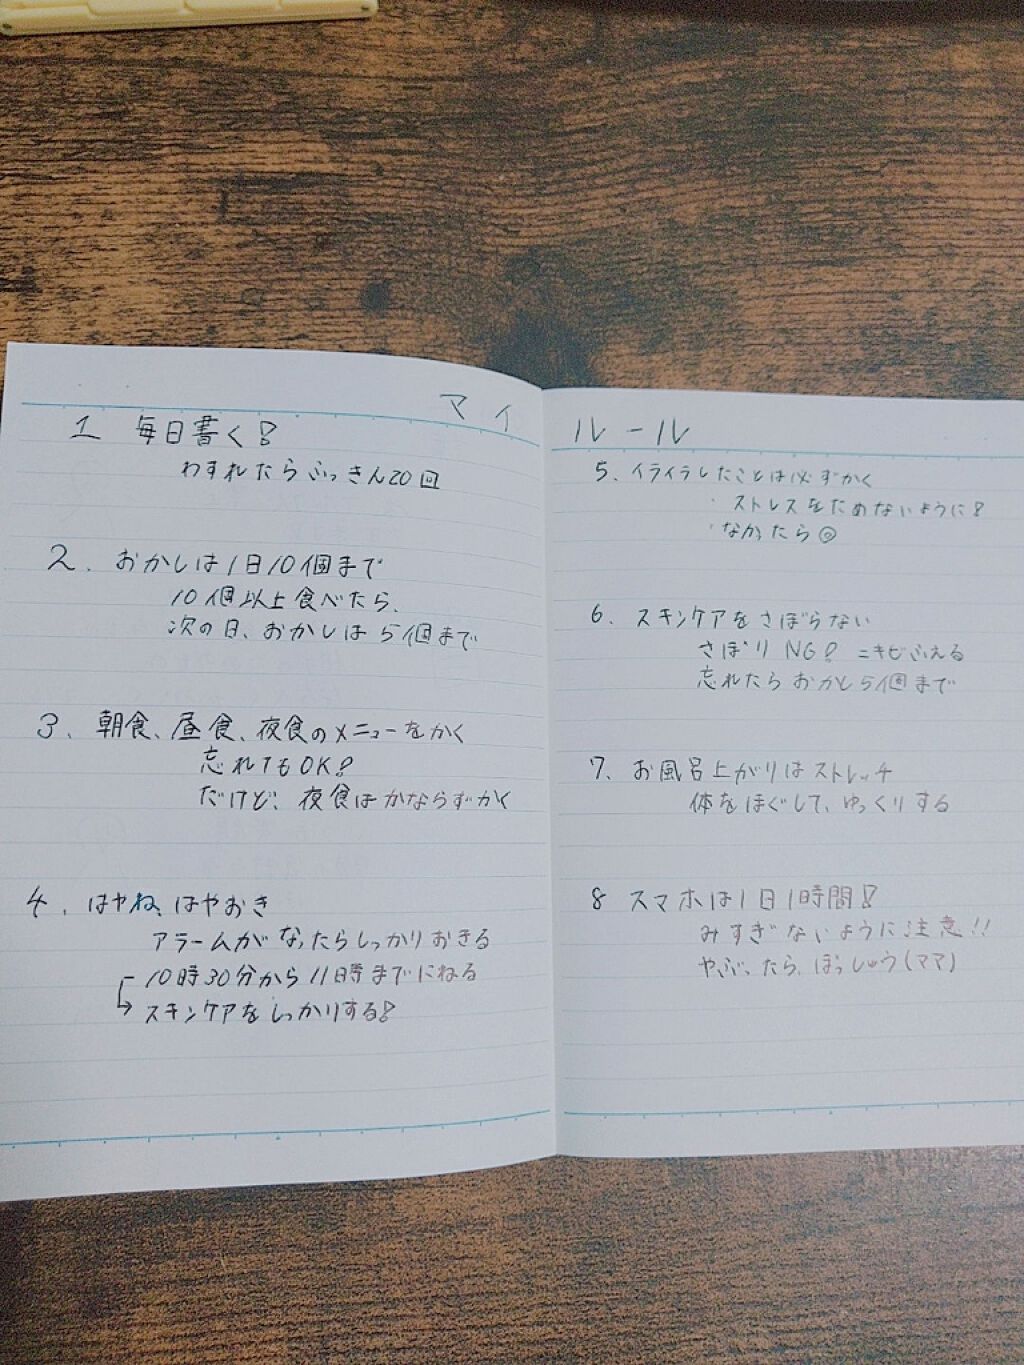 マイルール
1 毎日書く!
わすれたらふっきん20回
2. おかしは1日10個まで
10個以上食べたら、
次の日、おかしは5個まで
3. 朝食、昼食、夜食のメニューをかく
忘れてもOK!
だけど、夜食はかならずかく
4. はやね、はやおき
アラームがなったらしっかりおきる
10時30分から11時までにねる
→スキンケアをしっかりする!
5. イライラしたことは必ずかく
・ストレスをためないように!
・なかったら◎
6. スキンケアをさぼらない
さぼりNG! ニキビふえる
忘れたらおかし5個まで
7. お風呂上がりはストレッチ
体をほぐして、ゆっくりする
8 スマホは1日1時間!
みすぎないように注意!!
やぶったら、ぼっしゅう(ママ)